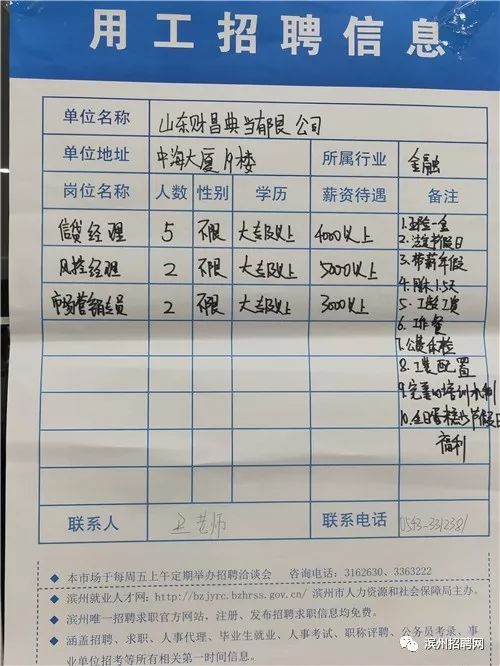 用工招聘信息
单位名称 山东财昌典当有限公司
单位地址 中海大厦 楼 所属行业 金融
岗位名称 人数 性别 学历 薪资待遇 备注
信贷经理 5 不限 大专及以上 4000以上
风控经理 2 不限 大专及以上 5000以上
市场营销专员 2 不限 大专及以上 3000以上
1.五险一金
2.法定节假日
3.带薪年假
4.周休1.5天
5.工龄工资
6.工作餐
7.公费体检
8.工装配置
9.完善的培训机制
10.生日蛋糕 节假日
福利
联系人 老师 联系电话 0543-3312381
◆ 本市场于每周五上午定期举办招聘洽谈会 咨询电话:3162630、3363222
◆ 滨州就业人才网:http://bzjyrc.bzhrss.gov.cn/ 滨州市人力资源和社会保障局主办。
◆ 滨州唯一招聘求职官方网站,注册、发布招聘求职信息均免费。
◆ 涵盖招聘、求职、人事代理、毕业生就业、人事考试、职称评聘、公务员考录、事
业单位招考等所有相关第一时间信息。
滨州招聘网